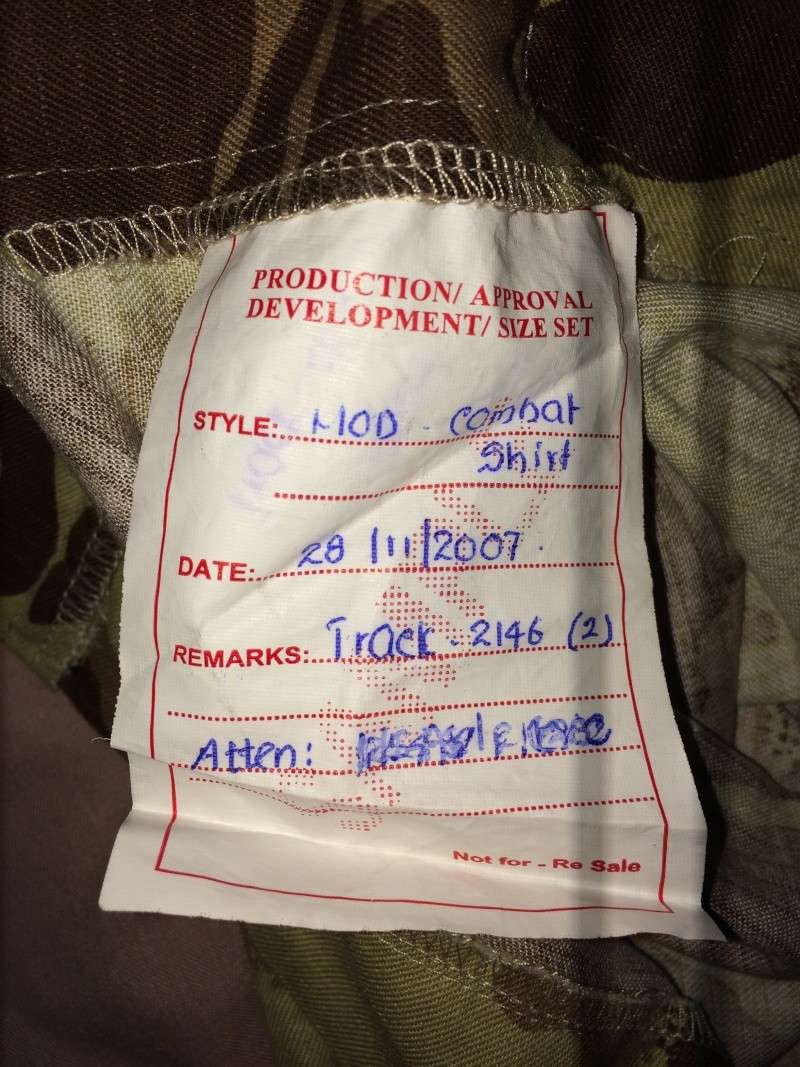 PRODUCTION/ APPROVAL
DEVELOPMENT/ SIZE SET
STYLE: MOD - Combat
Shirt
DATE: 28/11/2007.
REMARKS: Track - 2146 (2)
Atten:
Not for - Re Sale